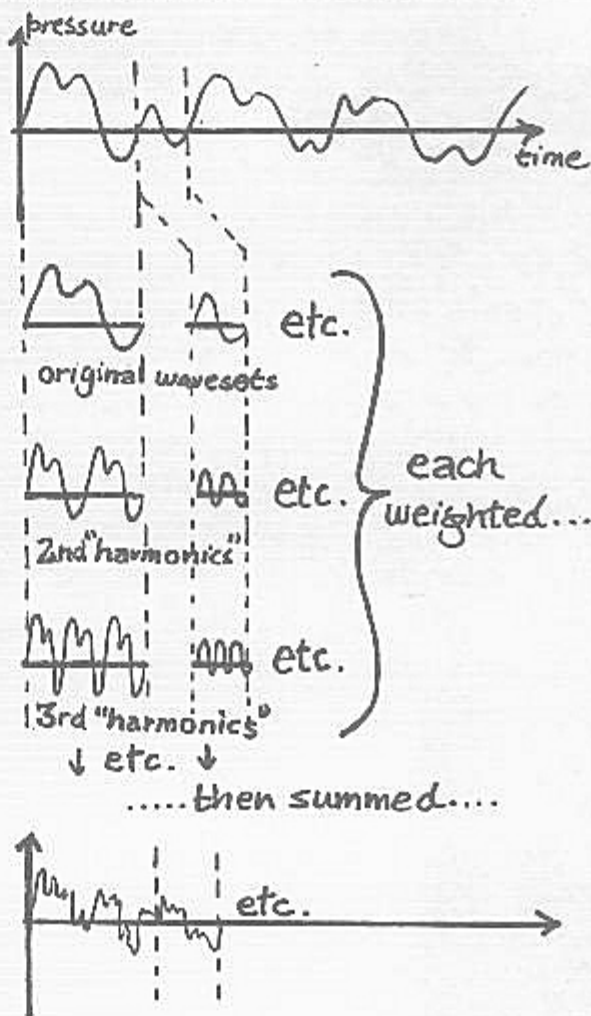 pressure
time
etc.
original wavesets
each
etc.
weighted...
2nd "harmonics"
etc.
3rd "harmonics"
↓ etc. ↓
.....then summed....
etc.